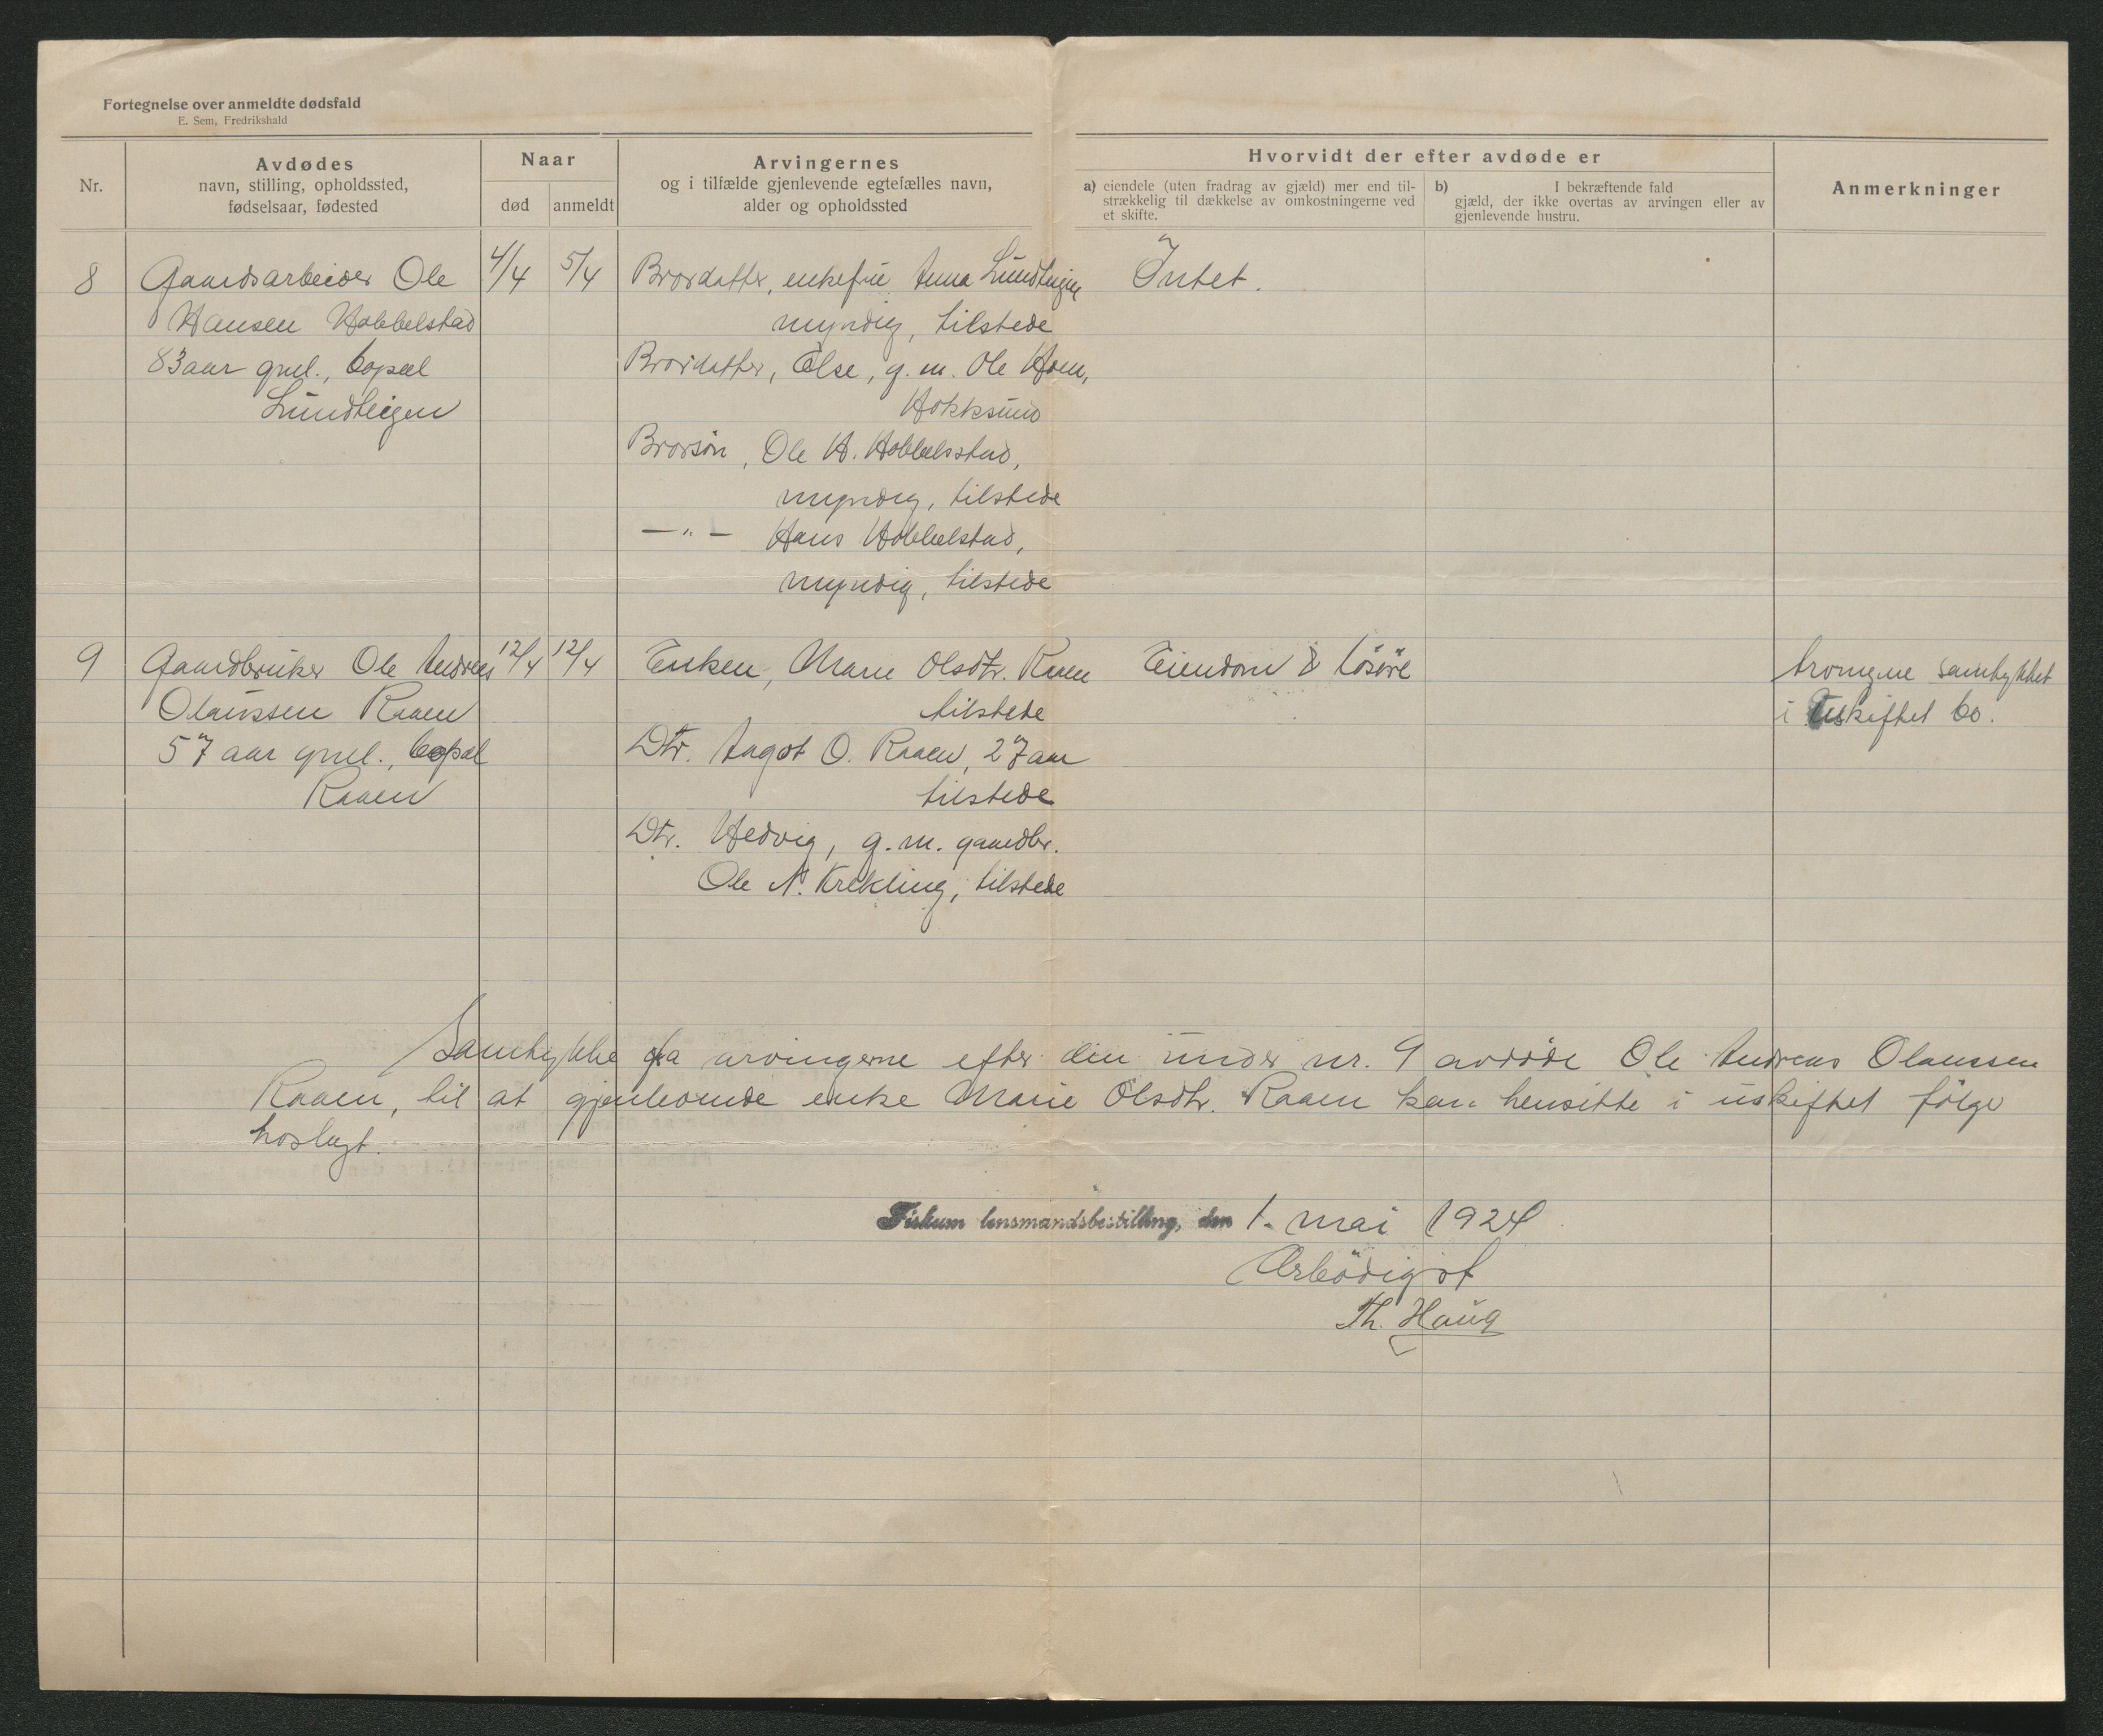 Fortegnelse over anmeldte dødsfald
E. Sem, Fredrikshald
Nr.
Avdødes
navn, stilling, opholdssted,
fødselsaar, fødested
Naar
død
anmeldt
Arvingernes
og i tilfælde gjenlevende egtefælles navn,
alder og opholdssted
Hvorvidt der efter avdøde er
a) eiendele (uten fradrag av gjæld) mer end til-
strækkelig til dækkelse av omkostningerne ved
et skifte.
b) I bekræftende fald
gjæld, der ikke overtas av arvingen eller av
gjenlevende hustru.
Anmerkninger
8 Gaardsarbeider Ole 4/4 5/4 Brordatter, enkefru Anna Lundteigen Intet.
Hansen Hobbelstad myndig, tilstede
83 aar gml., bopæl Brordatter, Else, g. m. Ole Hoen,
Lundteigen Hokksund
Brorsøn, Ole H. Hobbelsstad,
myndig, tilstede
—"— Hans Hobbelstad,
myndig, tilstede
9 Gaardbruker Ole Andreas 12/4 12/4 Enken, Marie Olsdtr. Raaen Eiendom & Løsøre samtykket
Olaussen Raaen tilstede i uskiftet bo.
57 aar gml., bopæl Dtr. Aagot O. Raaen, 27 aar
Raaen tilstede
Dtr. Hedvig, g. m. gaardbr.
Ole N. Krekling, tilstede
Samtykke fra arvingerne efter den under nr. 9 avdøde Ole Andreas Olaussen
Raaen, til at gjenlevende enke Marie Olsdtr. Raaen kan hensitte i uskiftet følger
hoslagt.
Fiskum lensmandsbestilling, den 1. mai 1924
Ærbødigst
Th. Haug